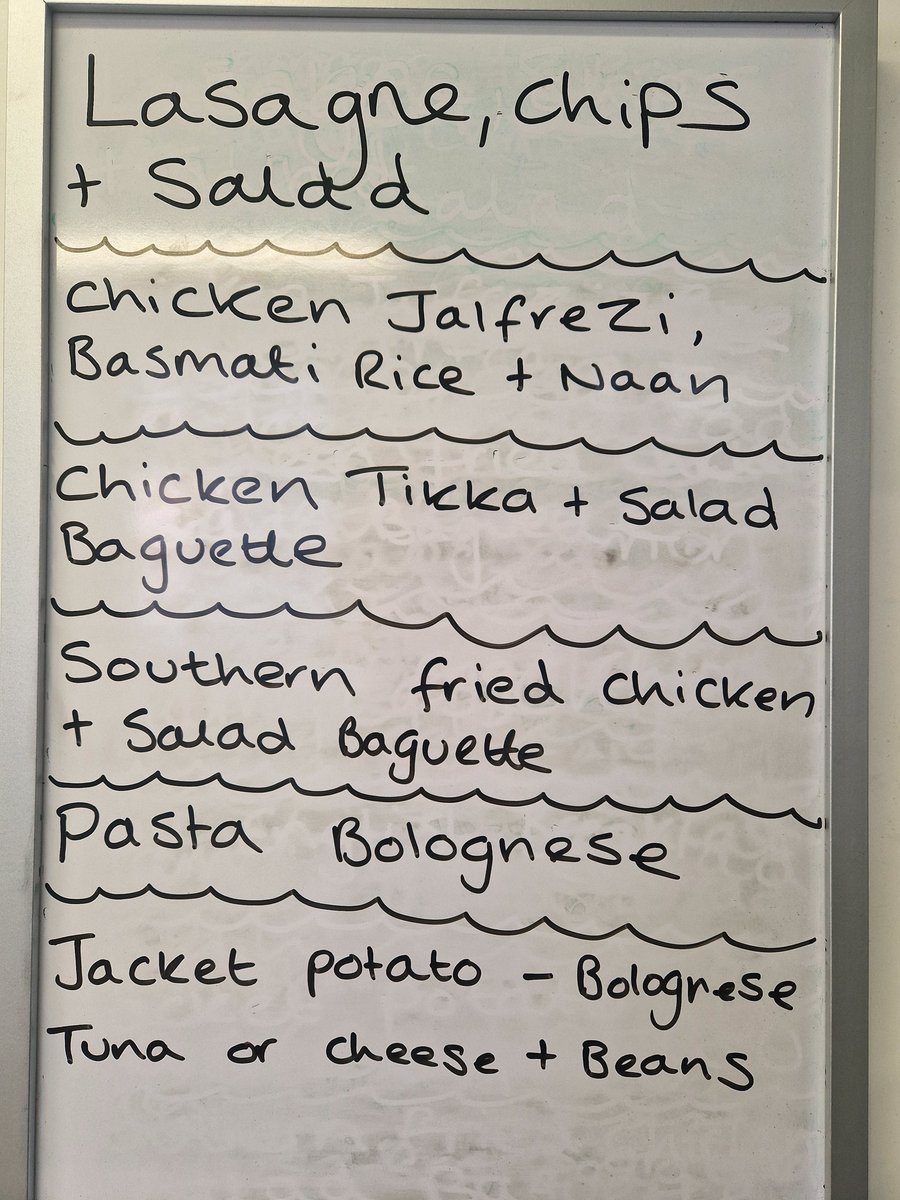 Lasagne, chips
+ Salad
Chicken Jalfrezi,
Basmati Rice + Naan
Chicken Tikka + Salad
Baguette
Southern fried chicken
+ Salad Baguette
Pasta Bolognese
Jacket potato - Bolognese
Tuna or cheese + Beans